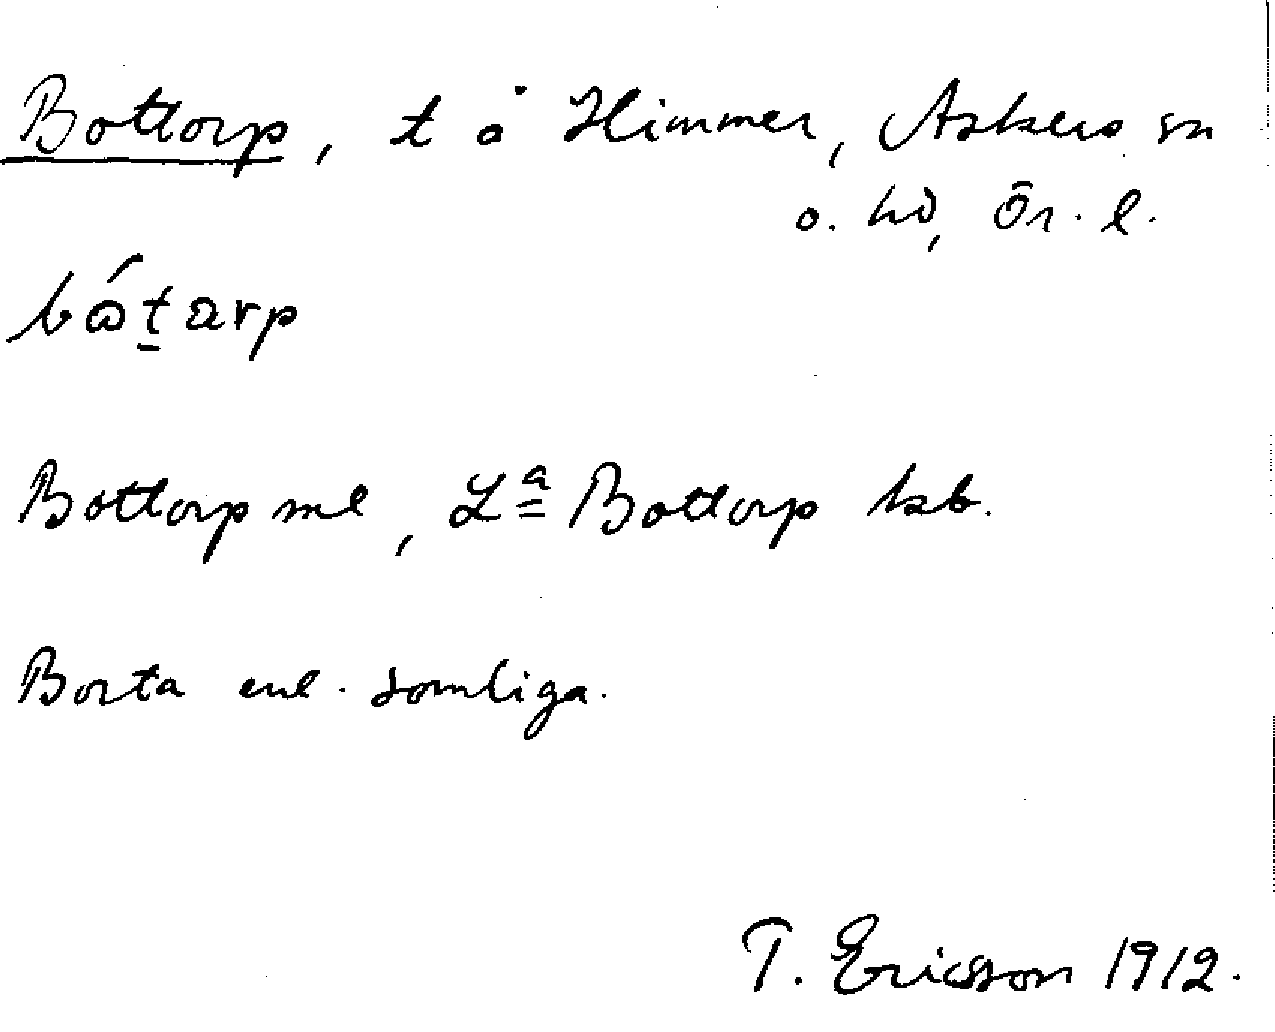 Bottorp, t å Himmer, Askers sn
o. hd, Ör. l.
bótarp
Bottorp ml, Lª Bottorp kb.
Borta enl. somliga.
T. Ericsson 1912.